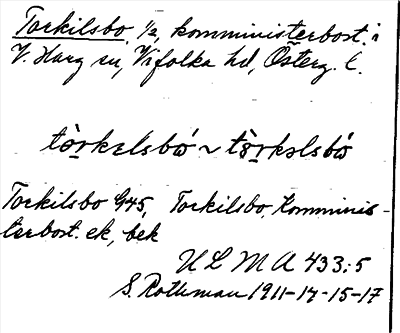 Torkilsbo 1/2, komministerbost. i
V. Harg sn, Vifolka hd, Österg. l.
tòrkɛlsbẃ ~ tòrkəlsbẃ
Torkilsbo G45, Torkilsbo, Komminis-
terbost. ek, bek
ULMA 433:5
S. Rothman 1911-14-15-17